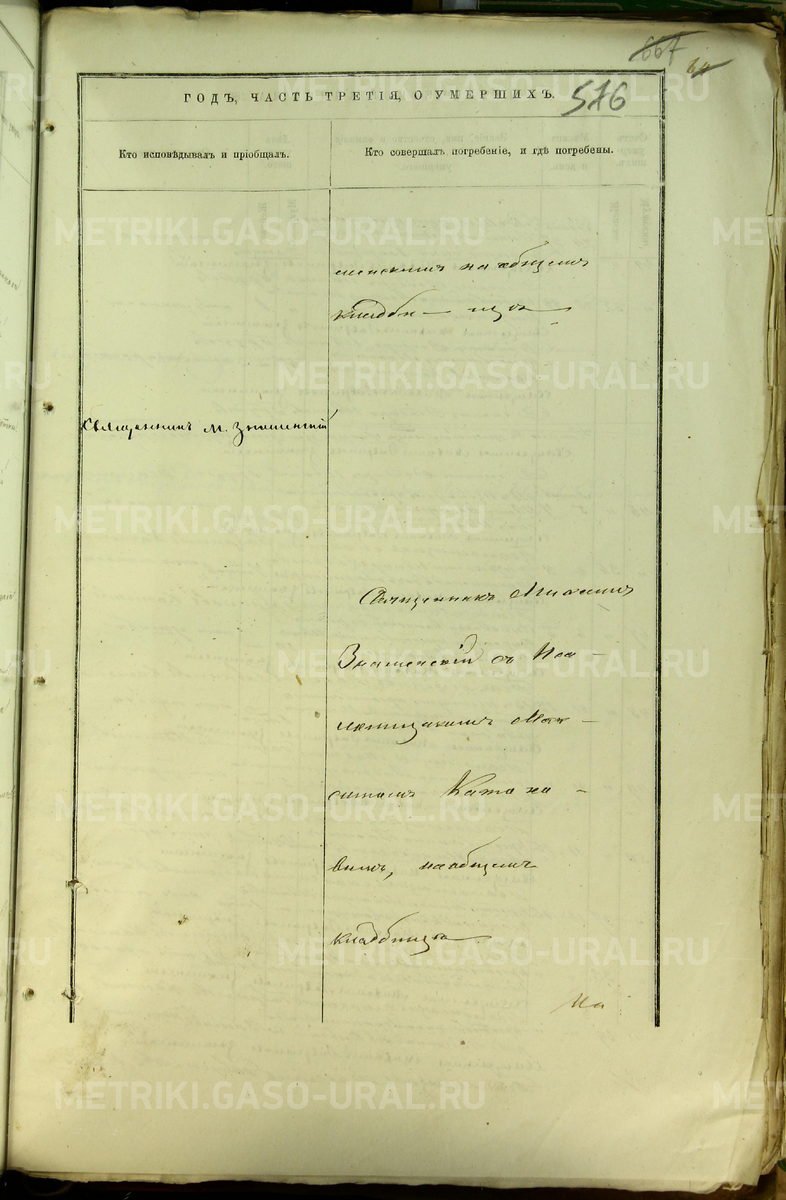 667
ГОДЪ, ЧАСТЬ ТРЕТІЯ, О УМЕРШИХЪ.
576
Кто исповѣдывалъ и пріобщалъ.
Кто совершалъ погребеніе, и гдѣ погребены.
на общемъ
кладби— щѣ
Священникъ М. Знаменскій
Священникъ Михаилъ
Знаменскій съ Пса-
ломщикомъ Мак-
симомъ Катаха-
вымъ, на общемъ
кладбищѣ
На
METRIKI.GASO-URAL.RU